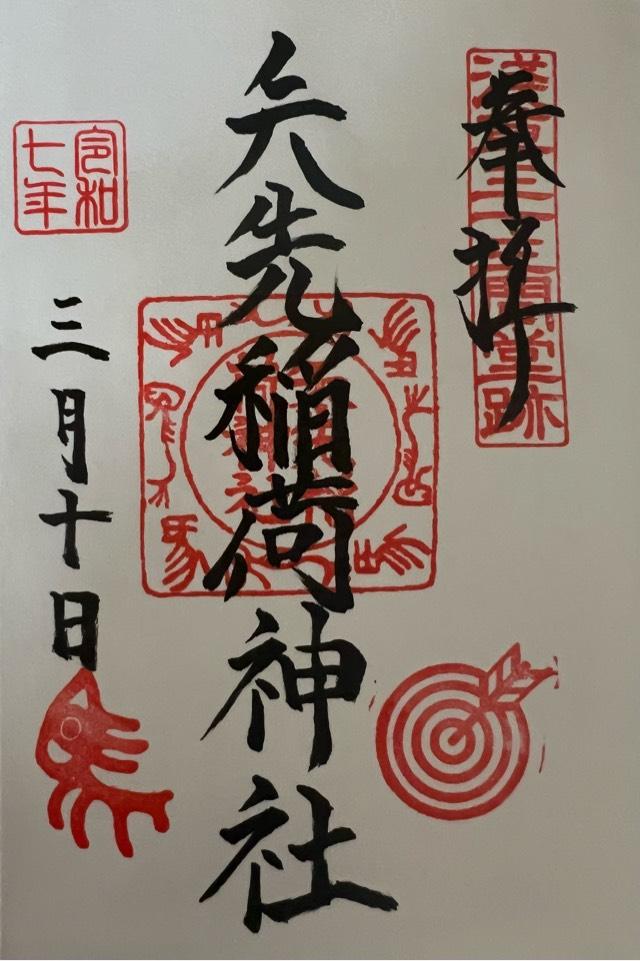 奉拝
浅草三十三間堂跡
矢先稲荷神社
令和七年
三月十日